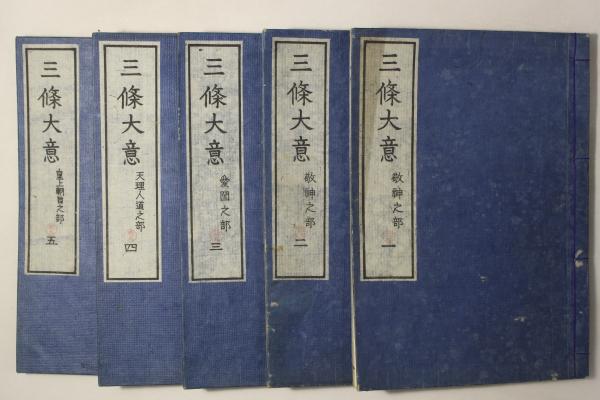 三條大意
敬神之部
一
三條大意
敬神之部
二
三條大意
愛國之部
三
三條大意
天理人道之部
四
三條大意
皇上朝旨之部
五